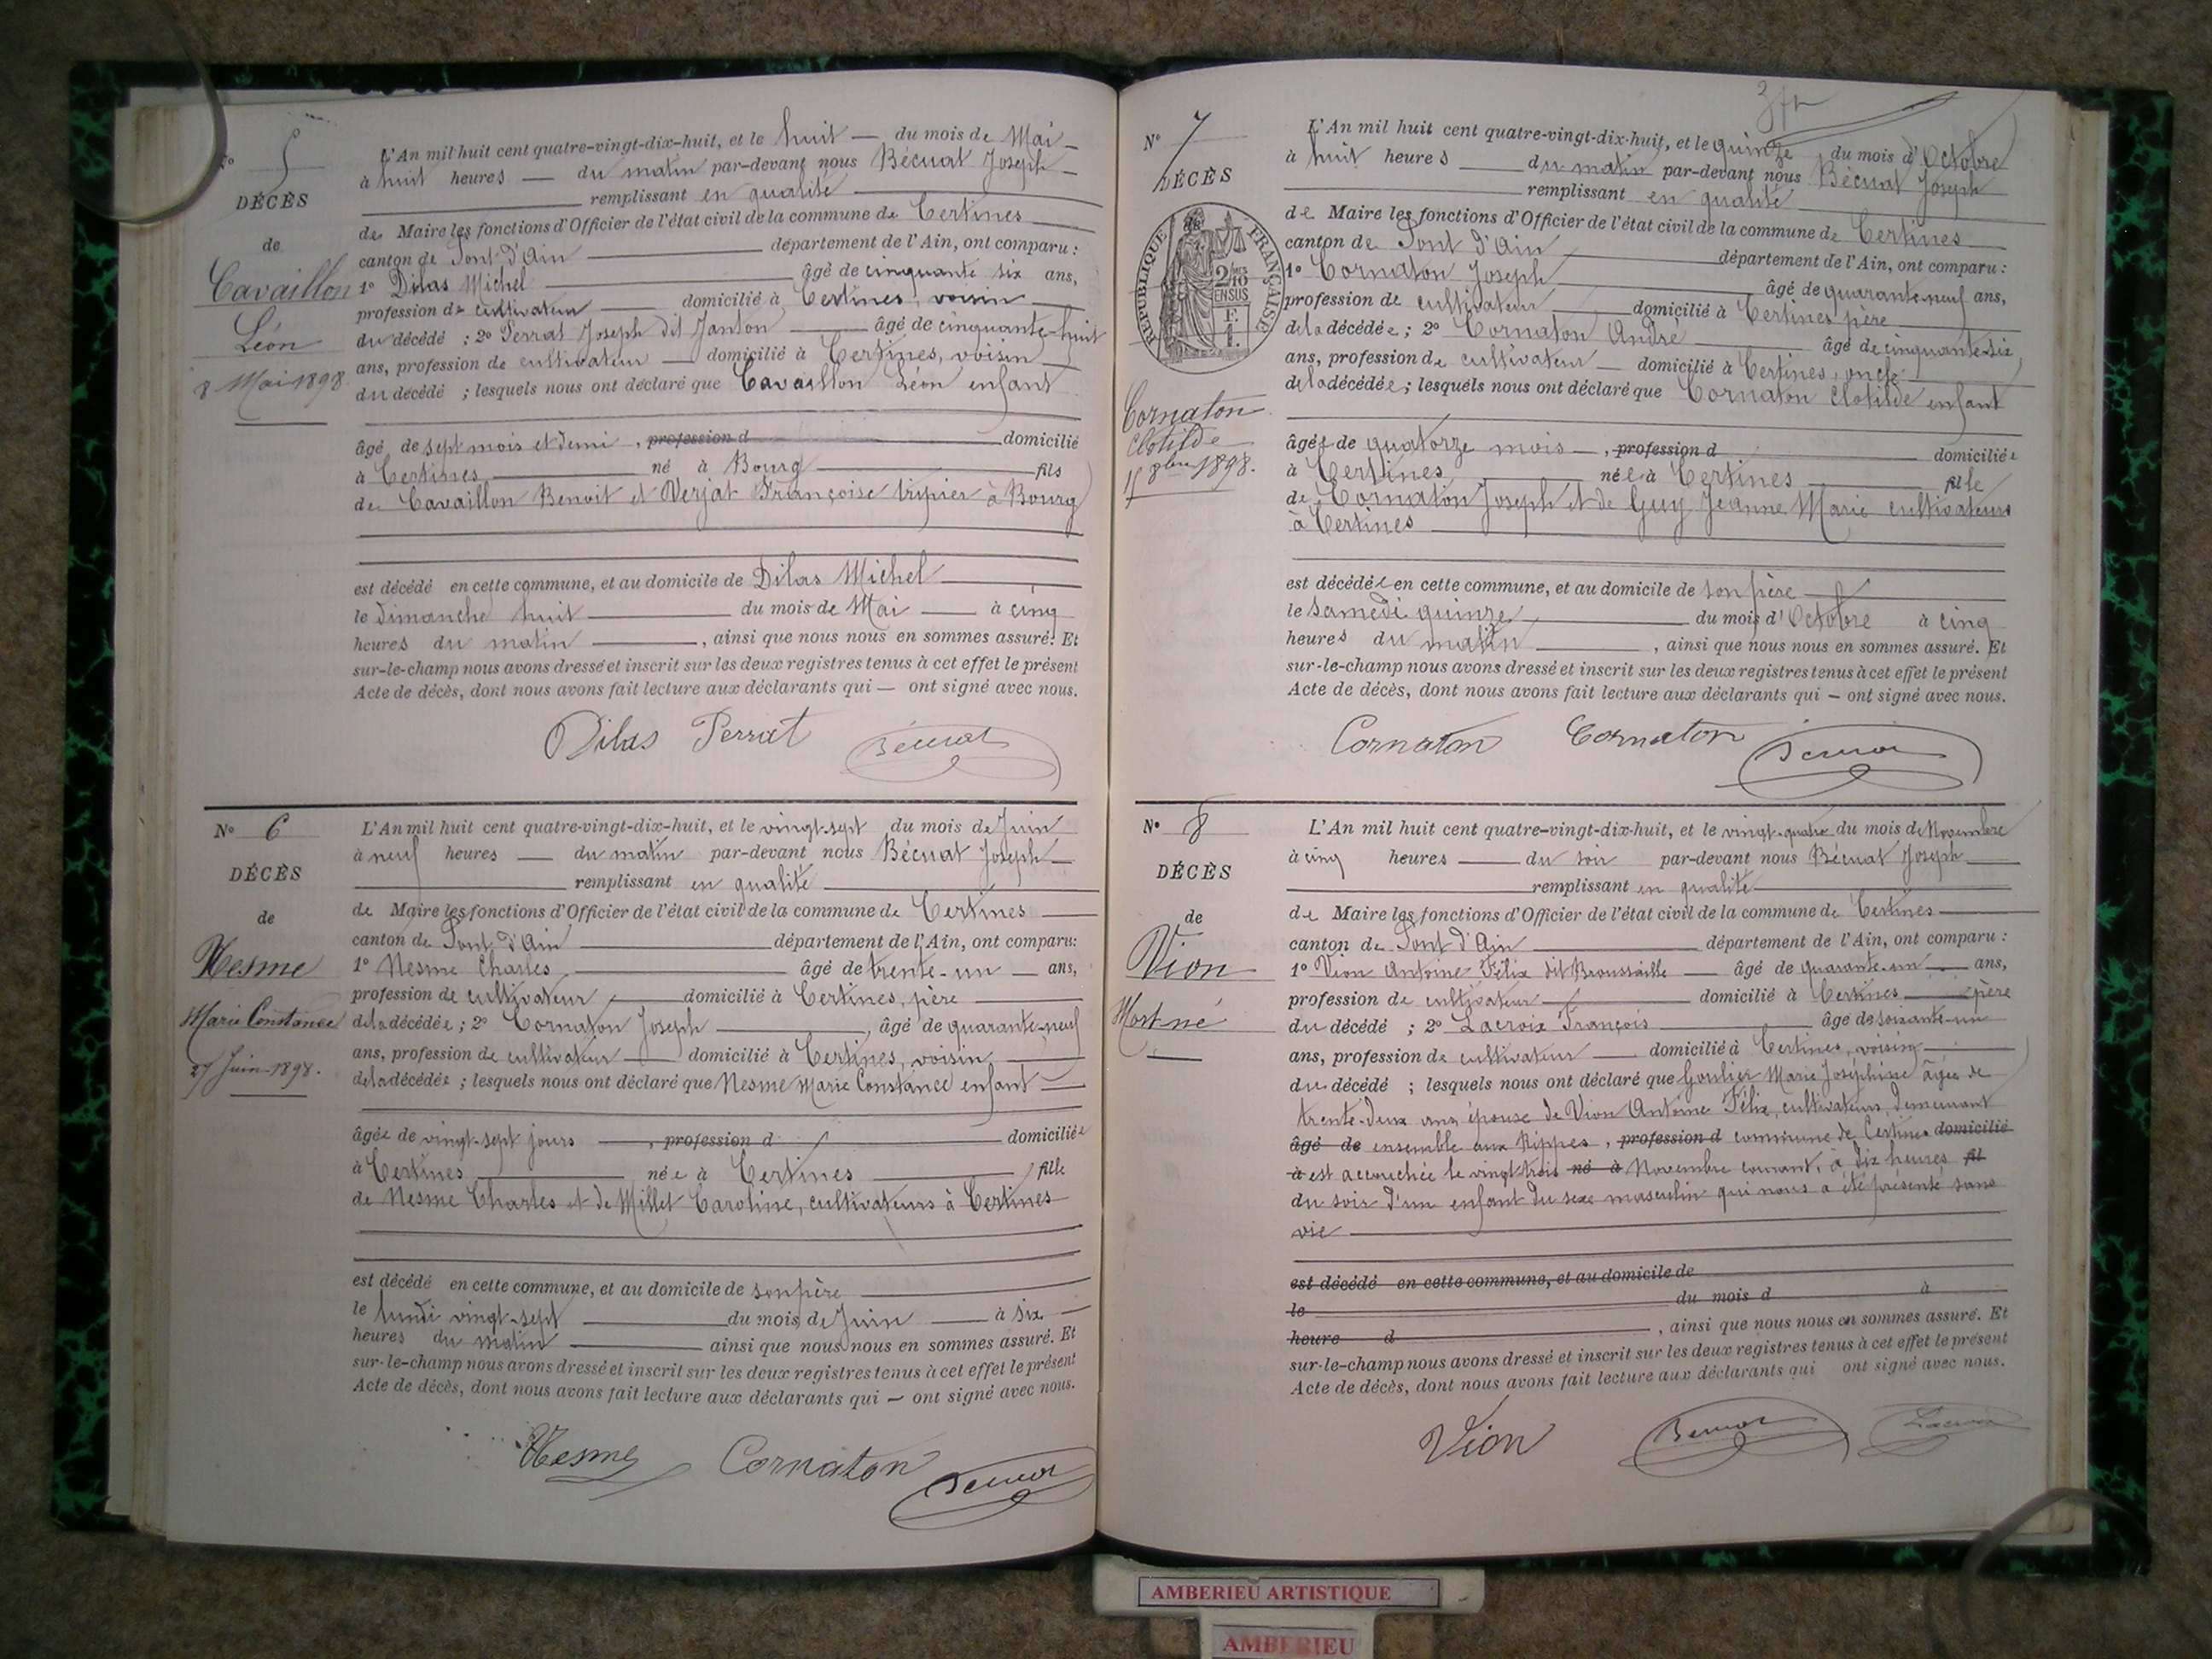 N° 5
DÉCÈS
de
Cavaillon
Léon
8 Mai 1898
L'An mil huit cent quatre-vingt-dix-huit, et le huit — du mois de Mai —
à huit heures — du matin par-devant nous Bécuat Joseph —
remplissant en qualité
de Maire les fonctions d'Officier de l'état civil de la commune de Certines
canton de Pont d'Ain département de l'Ain, ont comparu :
1° Dilas Michel âgé de cinquante six ans,
profession de cultivateur domicilié à Certines, voisin
du décédé ; 2° Perrat Joseph dit Janton âgé de cinquante-huit
ans, profession de cultivateur domicilié à Certines, voisin
du décédé ; lesquels nous ont déclaré que Cavaillon Léon enfant
âgé de sept mois et demi , profession d domicilié
à Certines né à Bourg fils
de Cavaillon Benoit et Verjat Françoise tripier à Bourg
est décédé en cette commune, et au domicile de Dilas Michel
le dimanche huit du mois de Mai à cinq
heures du matin , ainsi que nous nous en sommes assuré. Et
sur-le-champ nous avons dressé et inscrit sur les deux registres tenus à cet effet le présent
Acte de décès, dont nous avons fait lecture aux déclarants qui — ont signé avec nous.
Dilas Perrat Bécuat
N° 6
DÉCÈS
de
Nesme
Marie Constance
27 Juin 1898.
L'An mil huit cent quatre-vingt-dix-huit, et le vingt-sept du mois de Juin
à neuf heures — du matin par-devant nous Bécuat Joseph —
remplissant en qualité
de Maire les fonctions d'Officier de l'état civil de la commune de Certines
canton de Pont d'Ain département de l'Ain, ont comparu:
1° Nesme Charles âgé de trente-un — ans,
profession de cultivateur domicilié à Certines, père
de la décédée ; 2° Cornaton Joseph , âgé de quarante-neuf
ans, profession de cultivateur domicilié à Certines, voisin
de la décédée ; lesquels nous ont déclaré que Nesme Marie Constance enfant
âgée de vingt-sept jours , profession d domiciliée
à Certines née à Certines fille
de Nesme Charles et de Millet Caroline, cultivateurs à Certines
est décédé en cette commune, et au domicile de son père
le lundi vingt-sept du mois de Juin à six
heures du matin ainsi que nous nous en sommes assuré. Et
sur-le-champ nous avons dressé et inscrit sur les deux registres tenus à cet effet le présent
Acte de décès, dont nous avons fait lecture aux déclarants qui — ont signé avec nous.
Nesme Cornaton Bécuat
N° 7
DÉCÈS
RÉPUBLIQUE FRANÇAISE
2/10 EN SUS
F. 1.
Cornaton
Clotilde
15 8bre 1898.
L'An mil huit cent quatre-vingt-dix-huit, et le quinze du mois d'Octobre
à huit heures — du matin par-devant nous Bécuat Joseph
remplissant en qualité
de Maire les fonctions d'Officier de l'état civil de la commune de Certines
canton de Pont d'Ain département de l'Ain, ont comparu :
1° Cornaton Joseph âgé de quarante-neuf ans,
profession de cultivateur domicilié à Certines père
de la décédée ; 2° Cornaton André âgé de cinquante-six
ans, profession de cultivateur — domicilié à Certines, oncle
de la décédée ; lesquels nous ont déclaré que Cornaton Clotilde enfant
âgée de quatorze mois — , profession d domiciliée
à Certines née à Certines fille
de Cornaton Joseph et de Guy Jeanne Marie cultivateurs
à Certines
est décédée en cette commune, et au domicile de son père
le samedi quinze du mois d'Octobre à cinq
heures du matin , ainsi que nous nous en sommes assuré. Et
sur-le-champ nous avons dressé et inscrit sur les deux registres tenus à cet effet le présent
Acte de décès, dont nous avons fait lecture aux déclarants qui — ont signé avec nous.
Cornaton Cornaton Bécuat
N° 8
DÉCÈS
de
Vion
Mort-né
L'An mil huit cent quatre-vingt-dix-huit, et le vingt-quatre du mois de Novembre
à cinq heures — du soir par-devant nous Bécuat Joseph
remplissant en qualité
de Maire les fonctions d'Officier de l'état civil de la commune de Certines
canton de Pont d'Ain département de l'Ain, ont comparu :
1° Vion Antoine Félix dit Broussaille — âgé de quarante-un — ans,
profession de cultivateur domicilié à Certines père
du décédé ; 2° Lacroix François âgé de soixante-un
ans, profession de cultivateur — domicilié à Certines, voisin
du décédé ; lesquels nous ont déclaré que Goulier Marie Joséphine âgée de
trente-deux ans, épouse de Vion Antoine Félix, cultivateurs, demeurant
âgé de ensemble aux Rippes, profession d commune de Certines domicilié
à est accouchée le vingt trois né à Novembre courant, à dix heures fil
du soir d'un enfant du sexe masculin qui nous a été présenté sans
vie
est décédé en cette commune, et au domicile de
le du mois d à
heure d , ainsi que nous nous en sommes assuré. Et
sur-le-champ nous avons dressé et inscrit sur les deux registres tenus à cet effet le présent
Acte de décès, dont nous avons fait lecture aux déclarants qui ont signé avec nous.
Vion Bécuat Lacroix
AMBERIEU ARTISTIQUE
AMBERIEU